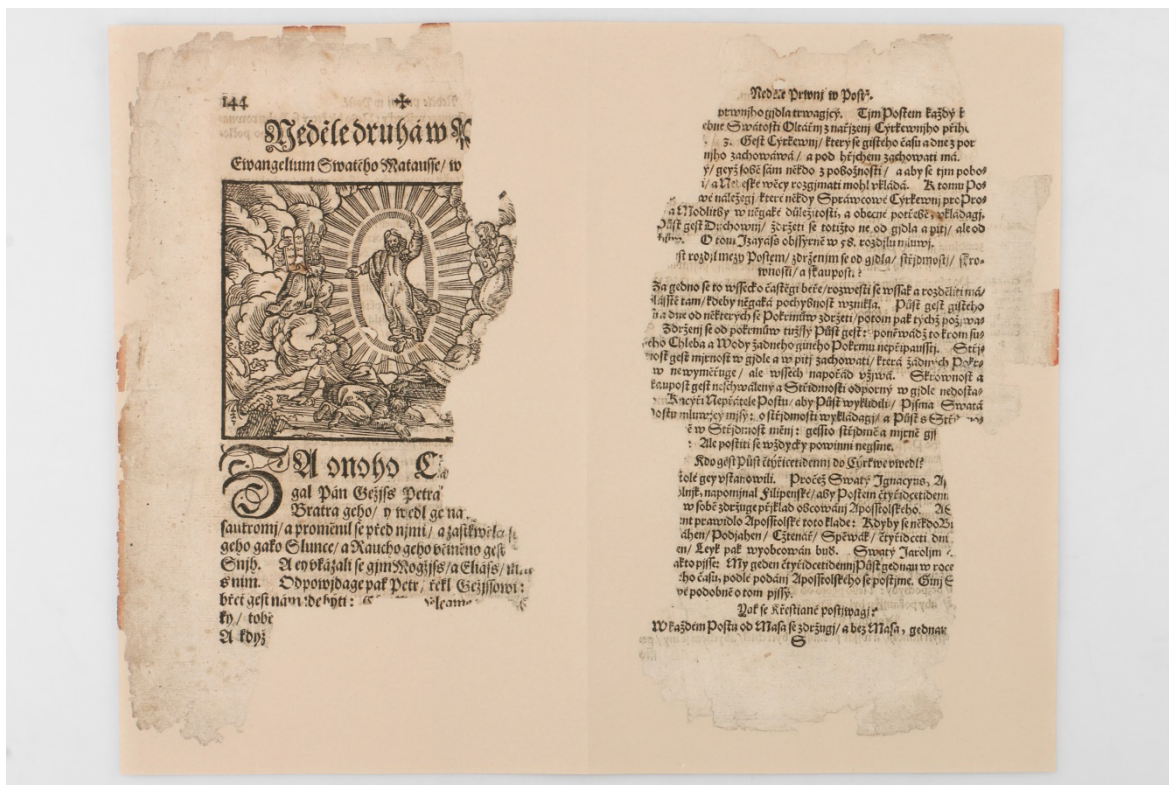 144
Neděle druhá w
Ewangelium Swatého Matausse/ w
ZA onoho
gal Pán Gežjss Petra
Bratra geho/ y wedl ge na
saukromj/ a proměnil se před nimi/ a zastkwěla
geho gako Slunce/ a Raucho geho bčiněno gest
Snjh. A ey vkázali se gjm Mogžjss/ a Eliáss/
s njm. Odpowjdage pak Petr/ řekl Gežjssowi:
břéť gest nám zde býti:
ky/ tobě
A když
Neděle Prwnj w Postě.
prwnjho gjdla trwagjcý. Tjm Postem každý k
ebné Swátosti Oltářnj z nařjzenj Cýrkewnjho přihl
3. Gest Cýrkewnj/ který se gistého času a dne z por
njho zachowáwá/ a pod hřjchem zachowati má.
y/ geyž sobě sám někdo z pobožnosti/ a aby se tjm pobo-
i/ a Nebeské wěcy rozgjmati mohl vkládá. K tomu Po-
wé náležegj které někdy Spráwcowé Cýrkewnj pro Pros-
a Modlitby w něgaké důležitosti, a obecné potřebě, wkládagj.
Půst gest Duchownj/ zdržeti se totižto ne od gjdla a pitj/ ale od
O tom Izayáss obssyrně w 58. rozdjlu mluwj.
st rozdjl mezy Postem/ zdrženjm se od gjdla/ střjdmostj/ skro-
wnostj/ a skaupostj?
Za gedno se to wssecko častěgi béře/ rozwesti se wssak a rozděliti má/
zlásstě tam/ kdeby něgaká pochybnost wznikla. Půst gest gistého
a dne od některých se Pokrmůw zdržeti/ potom pak týchž požjwa-
Zdrženj se od pokrmůw tužssý Půst gest: poněwádž to krom su-
ého Chleba a Wody žádného giného Pokrmu nepřipausstj. Střj-
nost gest mjrnost w gjdle a w pitj zachowati/ která žádných Pokr-
w newyměřuge/ ale wssech napořád vžjwá. Skrownost a
kaupost gest neschwálený a Střjdmosti odporný w gjdle nedosta-
Kacýři Nepřátelé Postu/ aby Půst wyklidili/ Pjsma Swatá
Postu mluwjcý mjsy: o střjdmosti wykládagj/ a Půst s
ě w Střjdmost měnj: gessto střjdmě a mjrně
Ale postiti se wždycky powinni negsme.
Kdo gest Půst čtyřicetidennj do Cýrkwe vwedl?
tolé gey vstanowili. Pročež Swatý Ignacyus,
lnjk, napomjnal Filipenské/ aby Postem čtyřidcetidenn
w sobě zdržuge přjklad obcowánj Aposstolského.
nt prawidlo Aposstolské toto klade: Kdyby se někdo Bi
áhen/ Podjahen/ Cžtenář/ Spěwák/ čtyřidceti dnj
en/ Leyk pak wyobcowán buď. Swatý Jarolým
akto pjsse: My geden čtyřidcetidennj Půst gednau w roce
ho času, podlé podánj Aposstolského se postjme. Ginj
wé podobně o tom pjssý.
Yak se Křestiané postjwagj?
W každém Postu od Masa se zdržugj/ a bez Masa, gednau
S